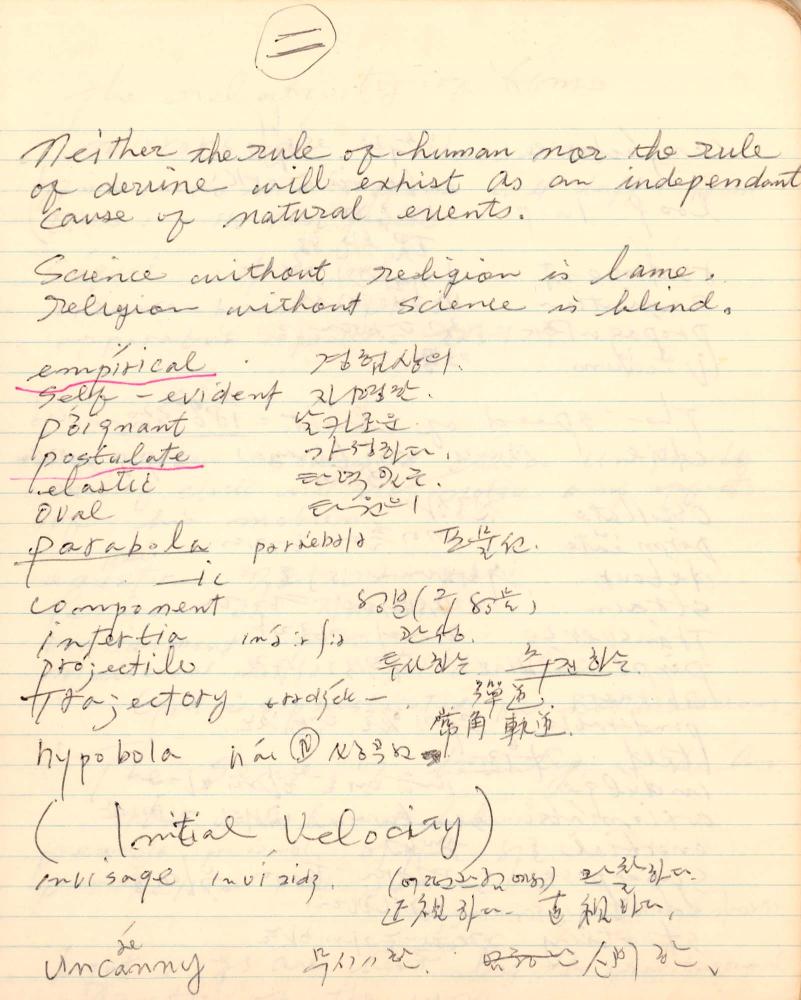 二
Neither the rule of human nor the rule
of devine will exhist as an independant
cause of natural events.
Science without religion is lame.
religion without science is blind.
empirical 경험상의.
self-evident 자명한.
póignant 날카로운
postulate 가정하다.
elastic 탄력있는.
oval 타원의
parabola pərǽbələ 포물선.
—ic
component 성분(그, 성분)
intertia inə́:rʃiə 관성.
projectile 투사하는 추진하는.
Trajectory 彈道.
常角 軌道.
hypobola hái 쌍곡선
( Initial Velocity )
invisage invízidʒ. (어떤관점에서) 관찰하다.
正視하다. 直視하다.
uncanny 무시무시한. 신비한.